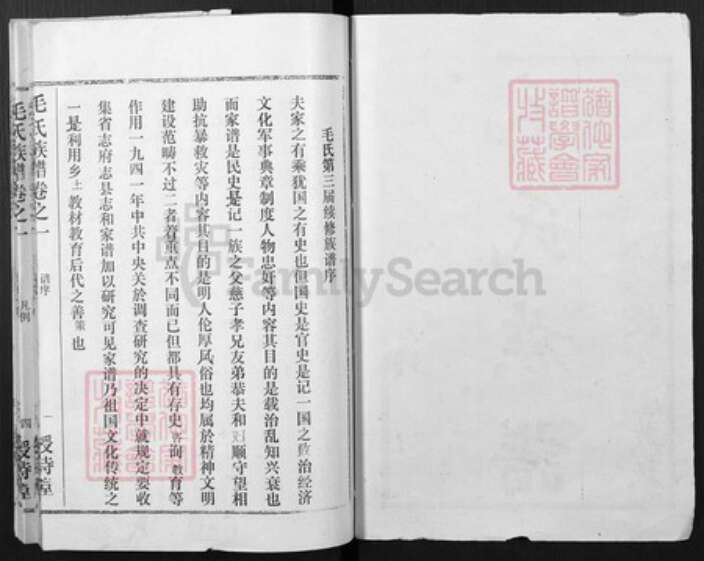 毛氏第三届续修族谱序
夫家之有乘犹国之有史也但国史是官史是记一国之政治经济
文化军事典章制度人物忠奸等内容其目的是载治乱知兴衰也
而家谱是民史是记一族之父慈子孝兄友弟恭夫和顺守望相
助抗暴救灾等内容其目的是明人伦厚风俗也均属於精神文明
建设范畴不过二者着重点不同而已但都具有存史咨询教育等
作用一九四一年中共中央关於调查研究的决定中就规定要收
集省志府志县志和家谱加以研究可见家谱乃祖国文化传统之
一是利用乡土教材教育后代之善策也
毛氏族谱卷之一
谱序
一
授诗堂
毛氏族谱卷之一
凡例
四
授诗堂
谱学会
收藏
FamilySearch